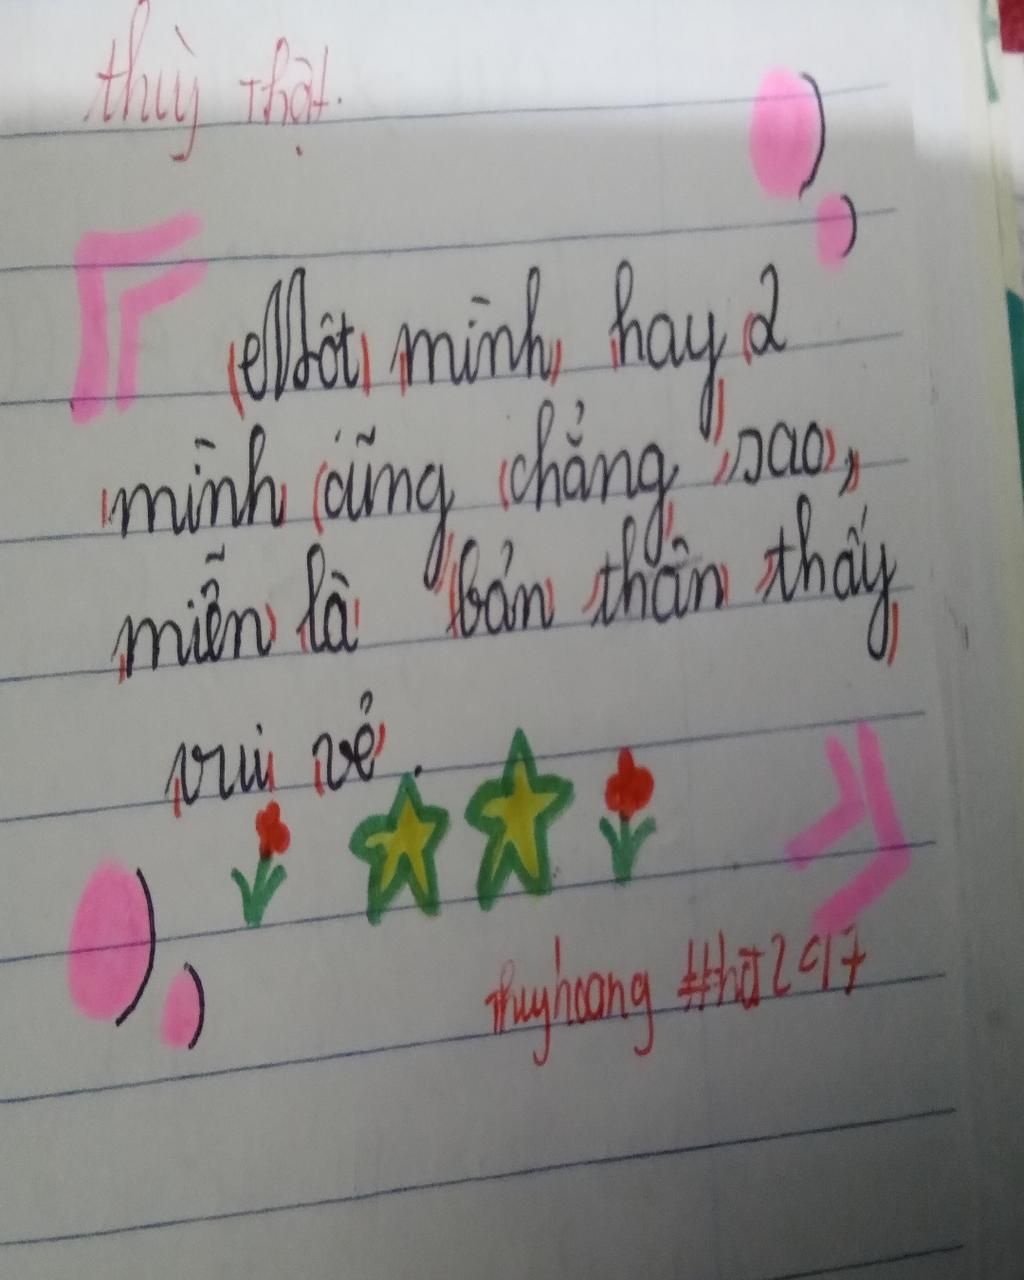 thuỳ Thật.
Một mình hay 2
mình cũng chẳng sao,
miễn là bản thân thấy
vui vẻ.
Thuyhoang #